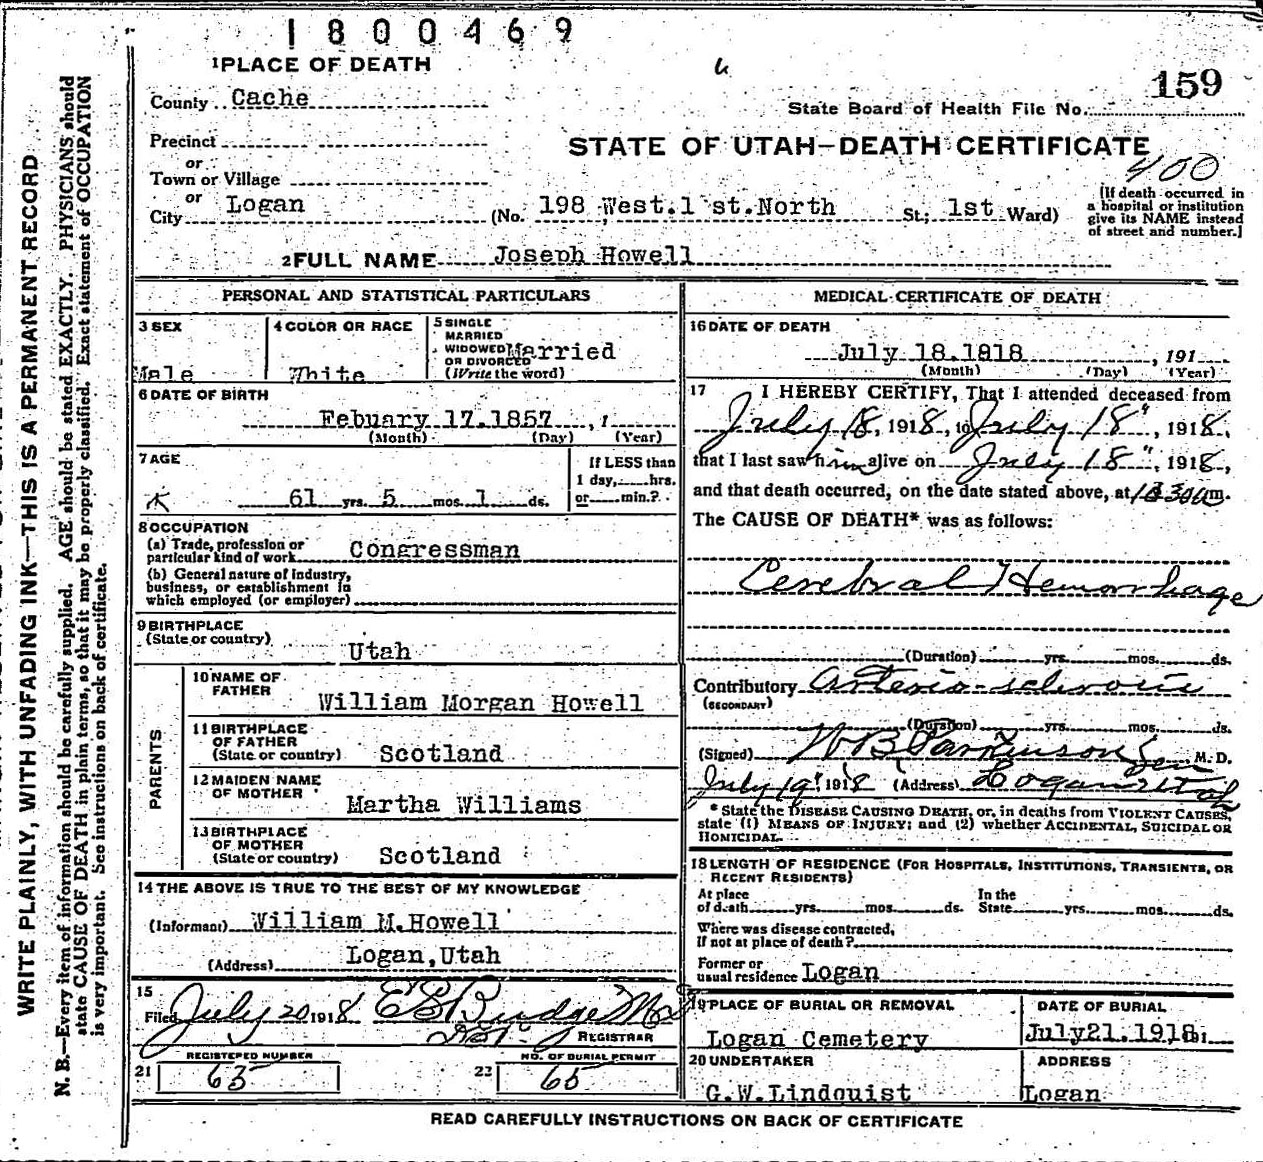 1800469
1 PLACE OF DEATH
159
County Cache
State Board of Health File No.
Precinct
STATE OF UTAH—DEATH CERTIFICATE
or
400
Town or Village
or
City Logan (No. 198 West.1 st.North St.; 1st Ward)
[If death occurred in
a hospital or institution
give its NAME instead
of street and number.]
2 FULL NAME Joseph Howell
PERSONAL AND STATISTICAL PARTICULARS
3 SEX
Male
4 COLOR OR RACE
White
5 SINGLE
MARRIED
WIDOWED Married
OR DIVORCED
(Write the word)
6 DATE OF BIRTH
Febuary 17.1857, 1
(Month) (Day) (Year)
7 AGE
61 yrs. 5 mos. 1 ds.
If LESS than
1 day, hrs.
or min.?
8 OCCUPATION
(a) Trade, profession or
particular kind of work Congressman
(b) General nature of industry,
business, or establishment in
which employed (or employer)
9 BIRTHPLACE
(State or country)
Utah
PARENTS
10 NAME OF
FATHER
William Morgan Howell
11 BIRTHPLACE
OF FATHER
(State or country) Scotland
12 MAIDEN NAME
OF MOTHER
Martha Williams
13 BIRTHPLACE
OF MOTHER
(State or country) Scotland
14 THE ABOVE IS TRUE TO THE BEST OF MY KNOWLEDGE
(Informant) William M.Howell
(Address) Logan,Utah
15
Filed July 20 1918 E S Budge
REGISTRAR
REGISTERED NUMBER
21 63
NO. OF BURIAL PERMIT
22 65
MEDICAL CERTIFICATE OF DEATH
16 DATE OF DEATH
July 18.1918, 191
(Month) (Day) (Year)
17 I HEREBY CERTIFY, That I attended deceased from
July 18, 1918, to July 18", 1918,
that I last saw him alive on July 18", 1918,
and that death occurred, on the date stated above, at m.
The CAUSE OF DEATH* was as follows:
Cerebral Hemorrhage
(Duration) yrs. mos. ds.
Contributory Arterio-sclerosis
(SECONDARY)
(Duration) yrs. mos. ds.
(Signed) W B Parkinson Sen M. D.
July 19", 1918 (Address) Logan Utah
* State the DISEASE CAUSING DEATH, or, in deaths from VIOLENT CAUSES,
state (1) MEANS OF INJURY; and (2) whether ACCIDENTAL, SUICIDAL OR
HOMICIDAL.
18 LENGTH OF RESIDENCE (FOR HOSPITALS, INSTITUTIONS, TRANSIENTS, OR
RECENT RESIDENTS)
At place In the
of death yrs. mos. ds. State yrs. mos. ds.
Where was disease contracted,
if not at place of death?
Former or
usual residence Logan
19 PLACE OF BURIAL OR REMOVAL
Logan Cemetery
DATE OF BURIAL
July 21.1918, 191
20 UNDERTAKER
G.W.Lindquist
ADDRESS
Logan
READ CAREFULLY INSTRUCTIONS ON BACK OF CERTIFICATE
WRITE PLAINLY, WITH UNFADING INK—THIS IS A PERMANENT RECORD
N. B.—Every item of information should be carefully supplied. AGE should be stated EXACTLY. PHYSICIANS should
state CAUSE OF DEATH in plain terms, so that it may be properly classified. Exact statement of OCCUPATION
is very important. See instructions on back of certificate.